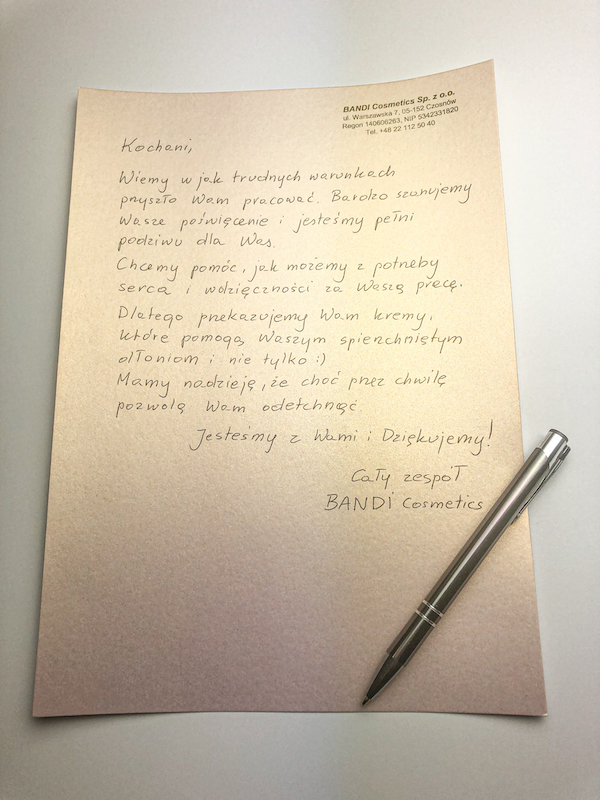 BANDI Cosmetics Sp. z o.o.
ul. Warszawska 7, 05-152 Czosnów
Regon 140606263, NIP 5342331820
Tel. +48 22 112 50 40
Kochani,
Wiemy w jak trudnych warunkach
przyszło Wam pracować. Bardzo szanujemy
Wasze poświęcenie i jesteśmy pełni
podziwu dla Was.
Chcemy pomóc, jak możemy z potrzeby
serca i wdzięczności za Waszą pracę.
Dlatego przekazujemy Wam kremy,
które pomogą Waszym spierzchniętym
dłoniom i nie tylko :)
Mamy nadzieję, że choć przez chwilę
pozwolą Wam odetchnąć.
Jesteśmy z Wami i Dziękujemy!
Cały zespół
BANDI Cosmetics